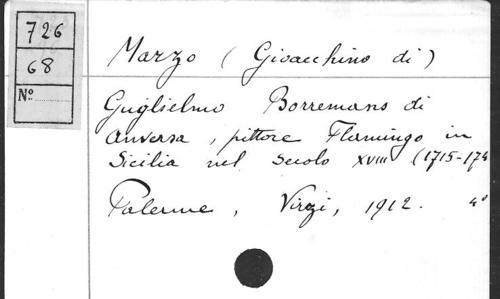 726
68
Nº
Marzo (Gioacchino di)
Guglielmo Borremans di
Anversa, pittore Flamingo in
Sicilia nel secolo XVIII (1715-174
Palerme, Virzi, 1912. 4º